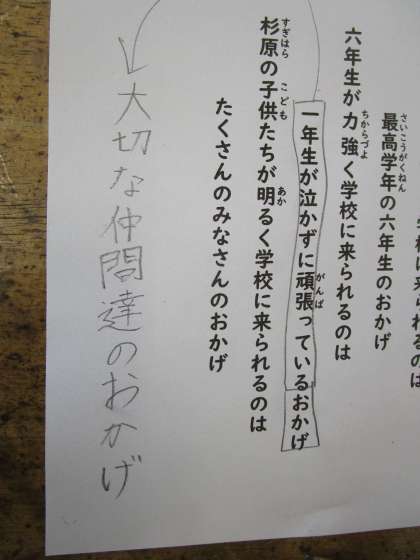 最高学年の六年生のおかげ
六年生が力強く学校に来られるのは
一年生が泣かずに頑張っているおかげ
杉原の子供たちが明るく学校に来られるのは
たくさんのみなさんのおかげ
大切な仲間達のおかげ